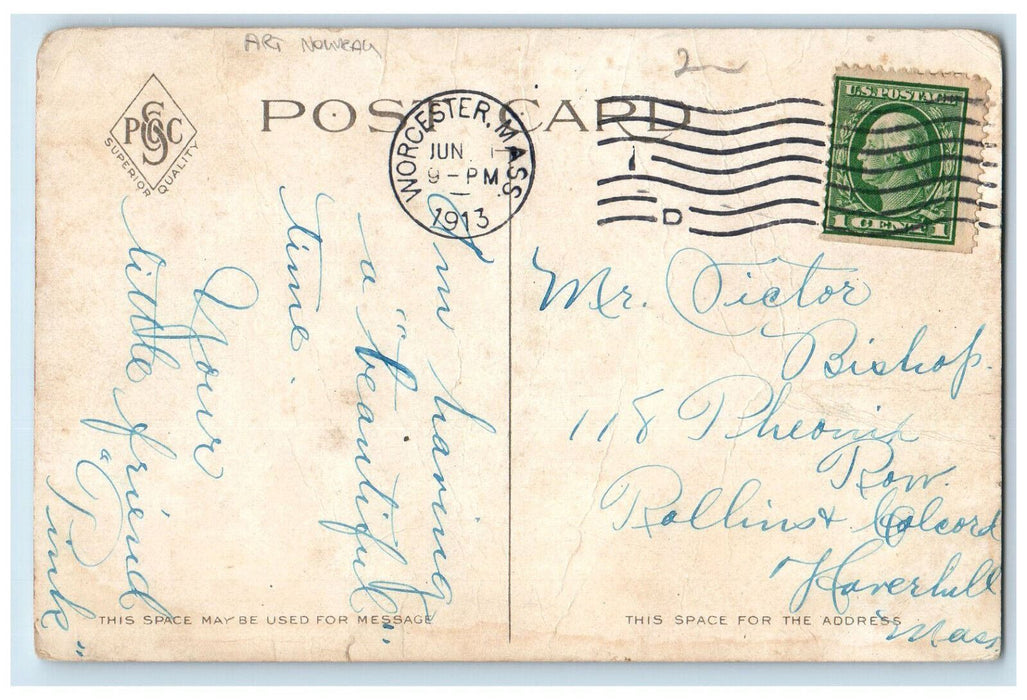 ART NOUVEAU
2
PSGC
SUPERIOR QUALITY
POST CARD
WORCESTER, MASS
JUN 1
9-PM
1913
D
U.S. POSTAGE
1 CENT 1
Am having
a "beautiful"
time.
Your
little friend
"Pink"
Mr. Victor
Bishop.
118 Pheonix
Row.
Rollins & Colcord
Haverhill
Mass
THIS SPACE MAY BE USED FOR MESSAGE
THIS SPACE FOR THE ADDRESS